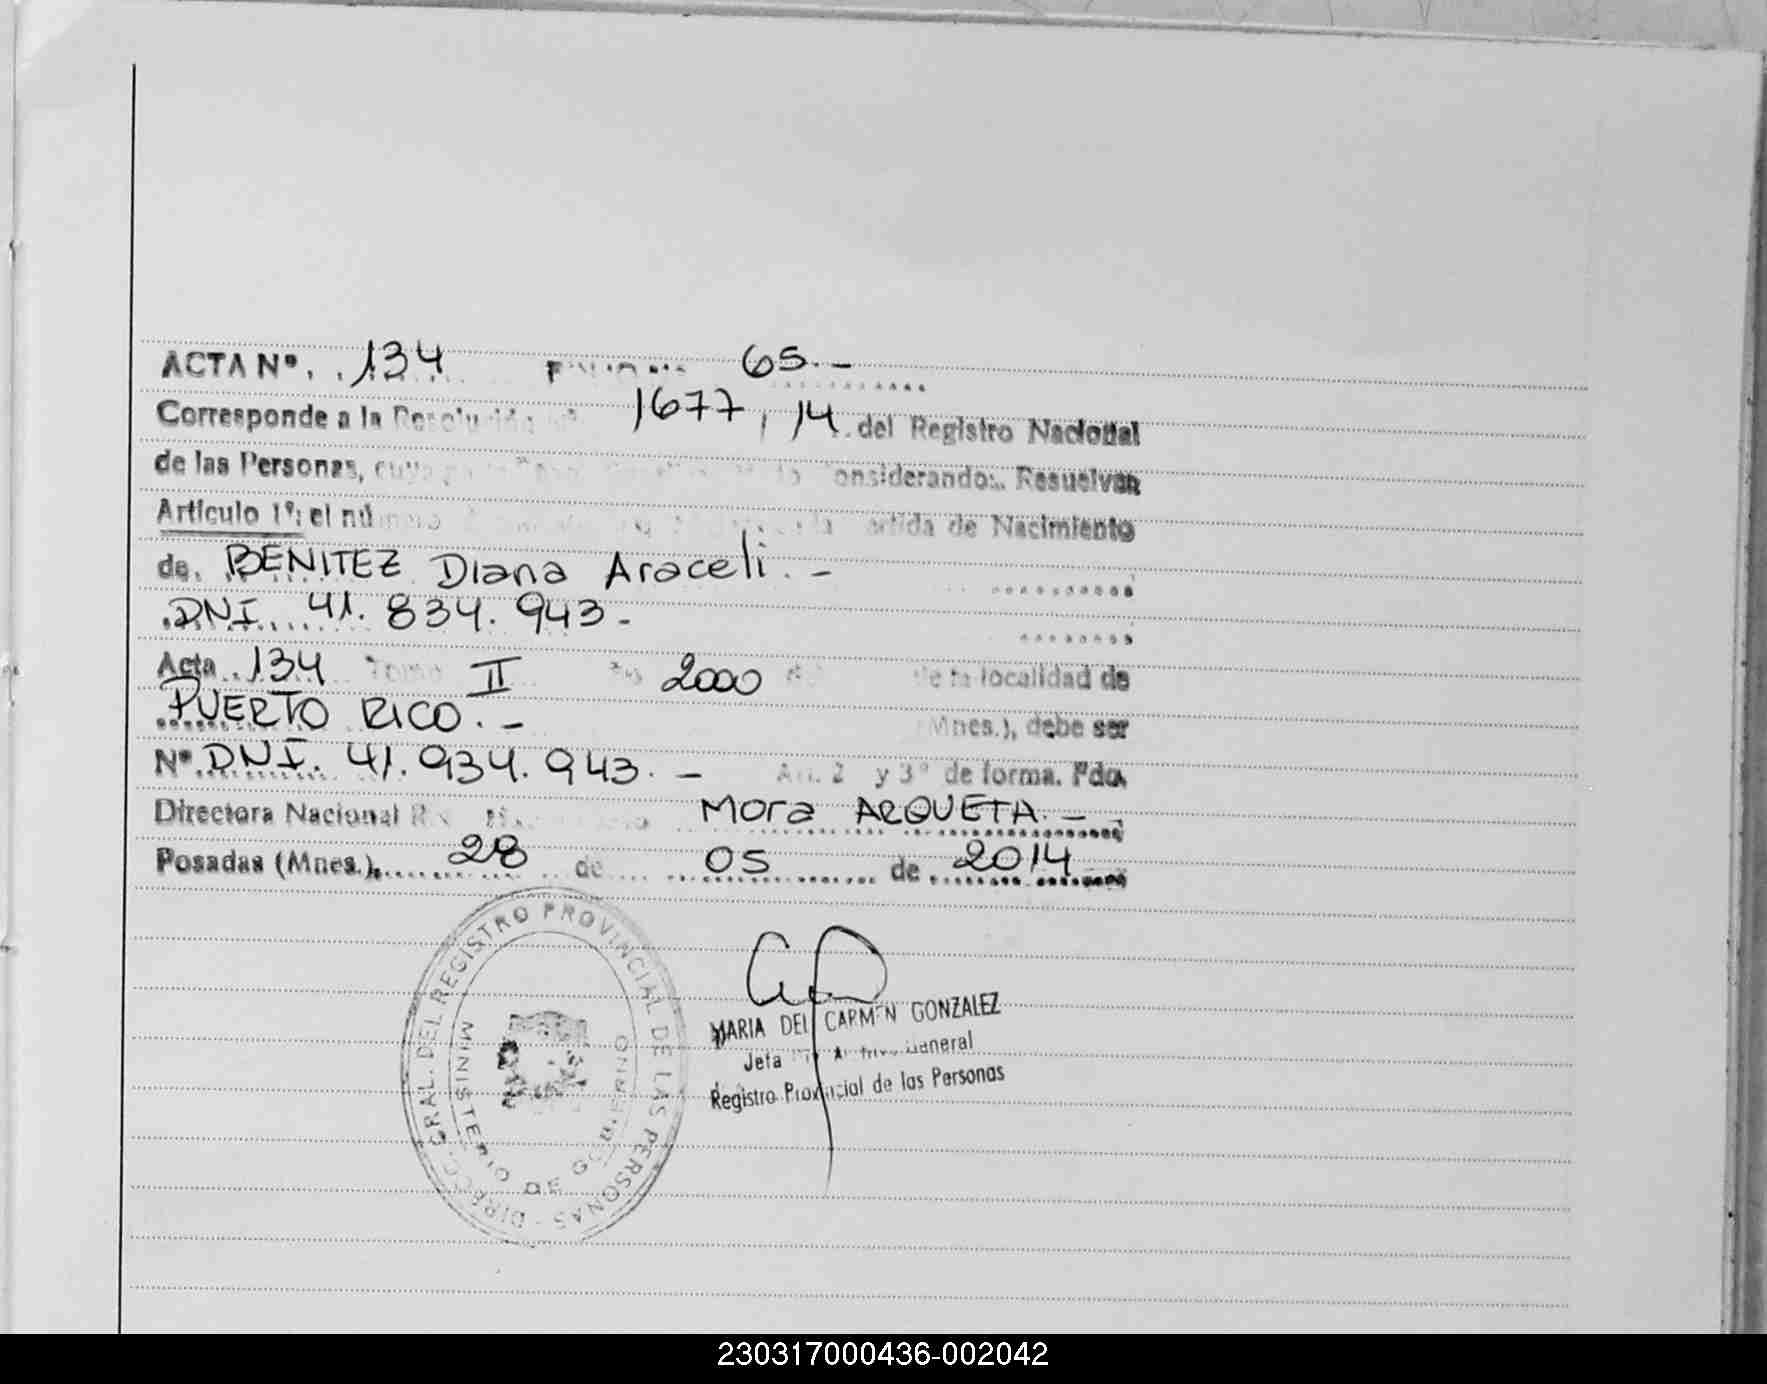 ACTA Nº. .134 65.-
Corresponde a la Resolución Nº 1677, 14 .del Registro Nacional
de las Personas, cuya considerando:. Resuelven
Artículo 1º: el número la Partida de Nacimiento
de. BENITEZ Diana Araceli.-
.DNI. 41.834.943.-
Acta..134 Tomo II 2000 de la localidad de
PUERTO RICO.- (Mnes.), debe ser
Nº.DNI. 41.934.943.- Art. 2 y 3º de forma. Fdo.
Directora Nacional Mora ARQUETA.-
Posadas (Mnes.), 28 de 05 de 2014
DIRECC. GRAL. DEL REGISTRO PROVINCIAL DE LAS PERSONAS -
MINISTERIO DE GOBIERNO
MARIA DEL CARMEN GONZALEZ
Jefa General
Registro Provincial de las Personas
230317000436-002042